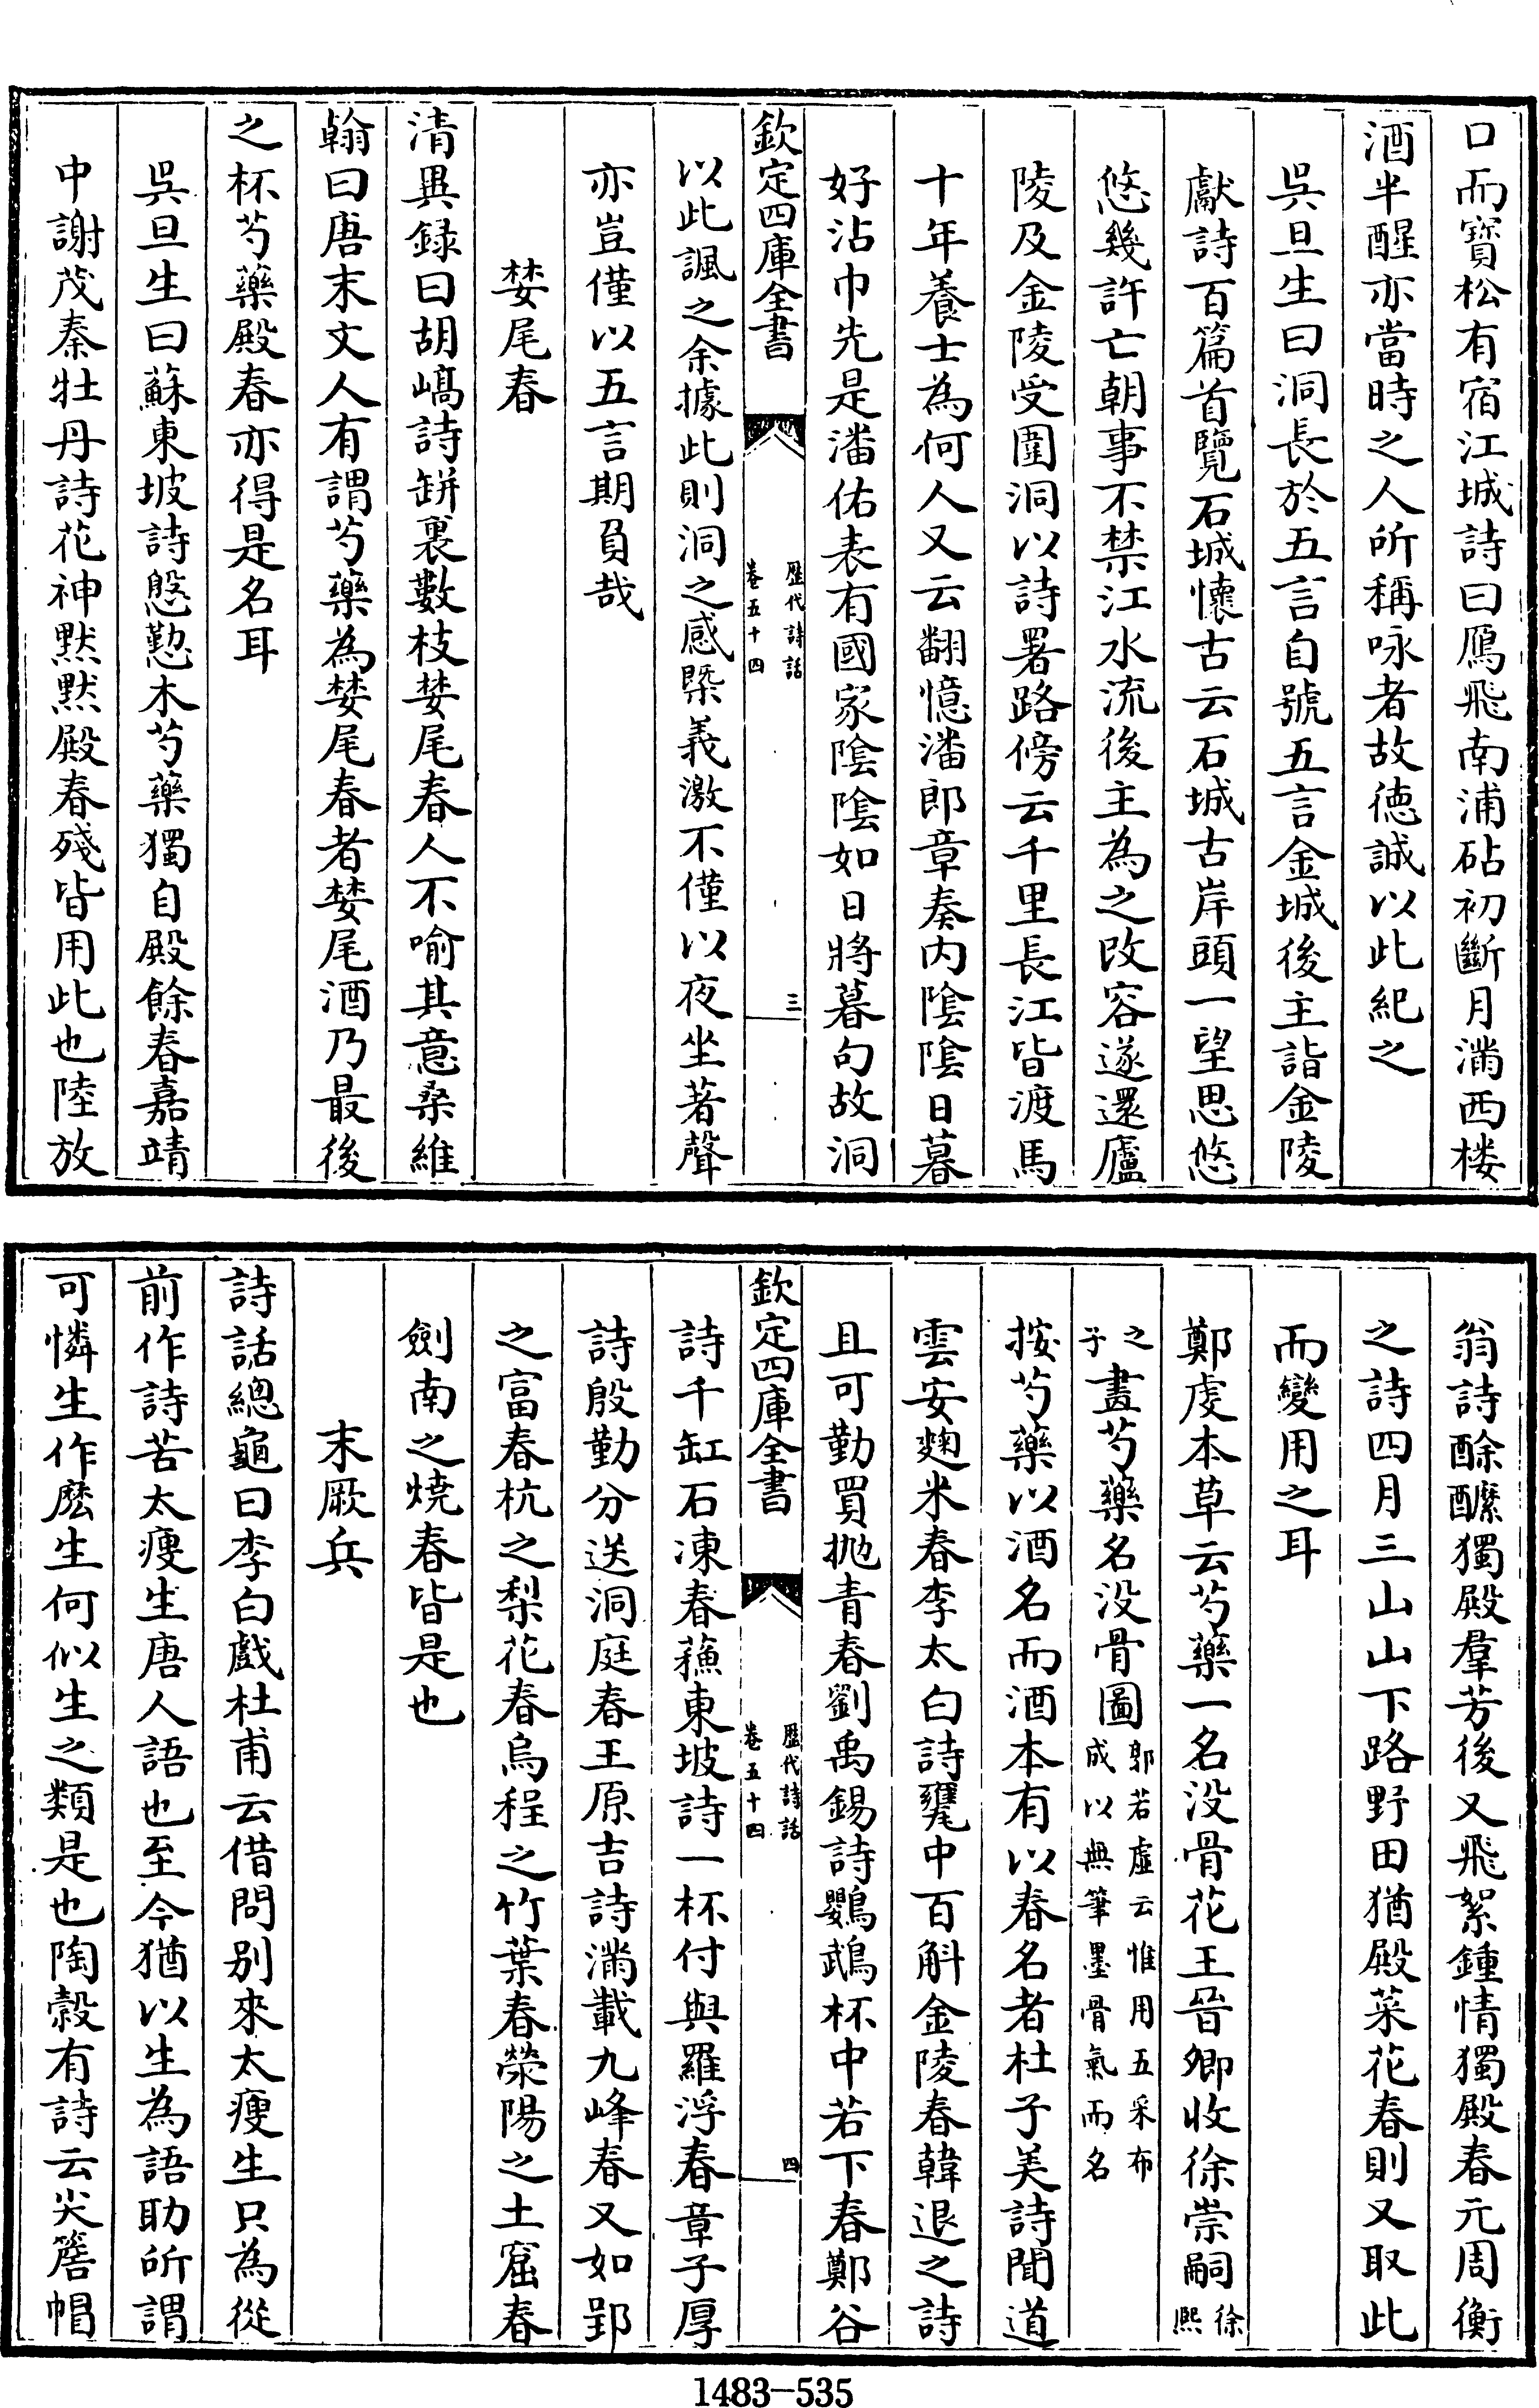 口而寳松有宿江城詩曰鴈飛南浦砧初斷月滿西楼
酒半醒亦當時之人所稱咏者故徳誠以此紀之
吳旦生曰洞長於五言自號五言金城後主詣金陵
獻詩百篇首覽石城懷古云石城古岸頭一望思悠
悠幾許亡朝事不禁江水流後主為之改容遂還廬
陵及金陵受圍洞以詩署路傍云千里長江皆渡馬
十年養士為何人又云翻憶潘郎章奏内隂隂日暮
好沾巾先是潘佑表有國家隂隂如日將暮句故洞
欽定四庫全書
歴代詩話
卷五十四
三
以此諷之余據此則洞之感槩義激不僅以夜坐著聲
亦豈僅以五言期負哉
婪尾春
清異録曰胡嶠詩缾裏數枝婪尾春人不喻其意桑維
翰曰唐末文人有謂芍藥為婪尾春者婪尾酒乃最後
之杯芍藥殿春亦得是名耳
吳旦生曰蘇東坡詩慇懃木芍藥獨自殿餘春嘉靖
中謝茂秦牡丹詩花神黙黙殿春殘皆用此也陸放
翁詩酴醿獨殿羣芳後又飛絮鍾情獨殿春元周衡
之詩四月三山山下路野田猶殿菜花春則又取此
而變用之耳
鄭虔本草云芍藥一名没骨花王晉卿收徐崇嗣徐熙
之子畫芍藥名没骨圖郭若虛云惟用五采布成以無筆墨骨氣而名
按芍藥以酒名而酒本有以春名者杜子美詩聞道
雲安麴米春李太白詩甕中百斛金陵春韓退之詩
且可勤買抛青春劉禹錫詩鸚鵡杯中若下春鄭谷
欽定四庫全書
歴代詩話
卷五十四
四
詩千缸石凍春蘓東坡詩一杯付與羅浮春章子厚
詩殷勤分送洞庭春王原吉詩滿載九峰春又如郢
之富春杭之梨花春烏程之竹葉春滎陽之土窟春
劍南之燒春皆是也
末厥兵
詩話總龜曰李白戲杜甫云借問别來太瘦生只為從
前作詩苦太瘦生唐人語也至今猶以生為語助所謂
可憐生作麽生何似生之類是也陶穀有詩云尖簷帽
1483-535